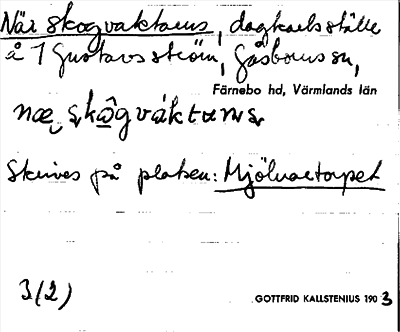 När skogvaktarns, dagkarlsställe
å 1 Gustavsström, Gåsborns sn,
Färnebo hd, Värmlands län
Skrives på platsen: Mjölnaretorpet
3(2)
GOTTFRID KALLSTENIUS 1903